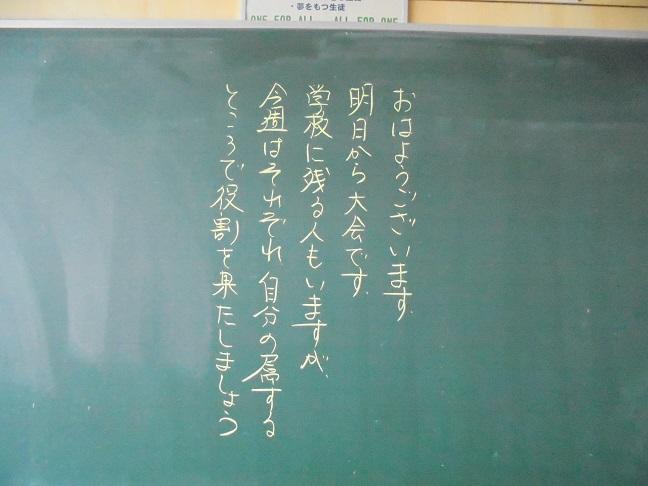 ・夢をもつ生徒
ONE FOR ALL  ALL FOR ONE
おはようございます.
明日から大会です.
学校に残る人もいますが、
今週はそれぞれ自分の属する
ところで役割を果たしましょう